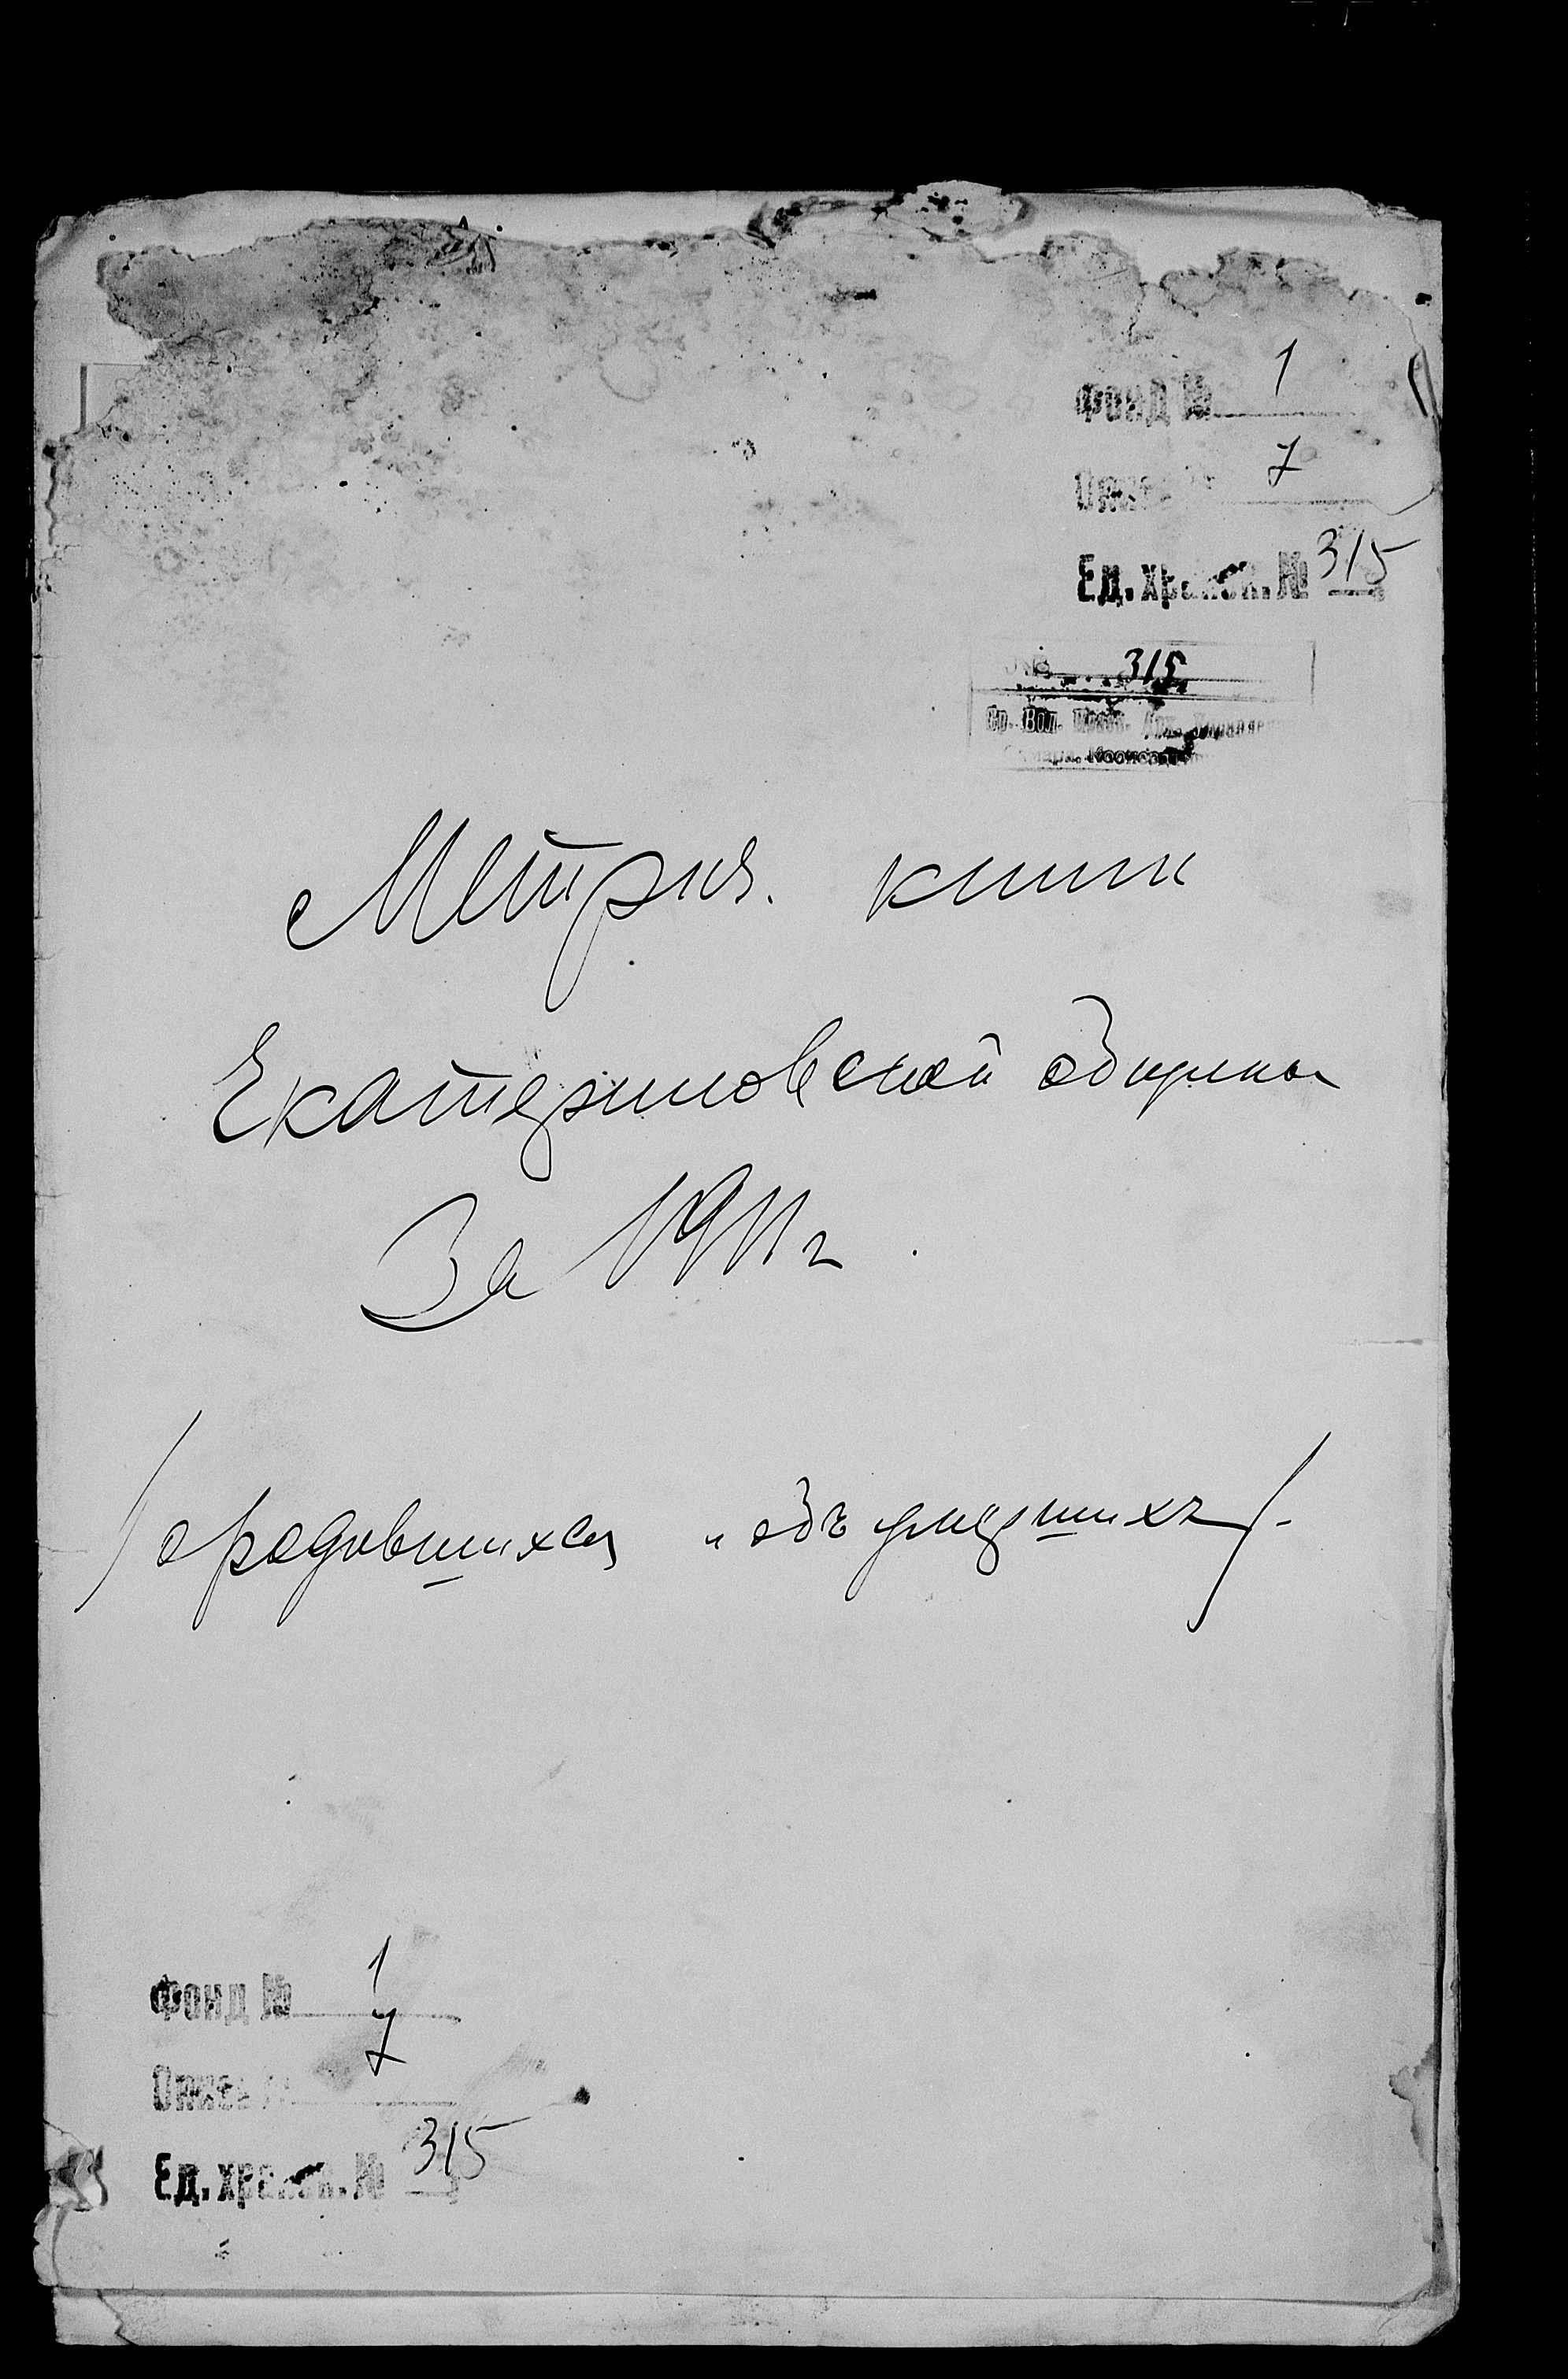 Фонд № 1
Опись № 7
Ед. хранен. № 315
315
Ср. Вол.
Метрич. книги
Екатериновской общины
За 1911 г
/о родившихся и объ умерших/.
Фонд № 1
Опись № 7
Ед. хранен. № 315